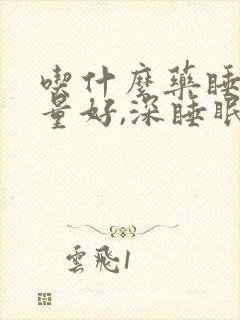 喫什麼藥睡
量好,深睡眠
雲飛1